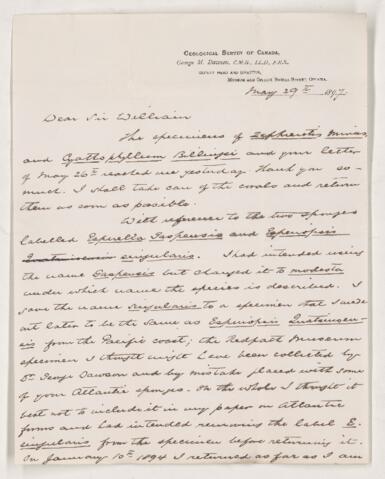 GEOLOGICAL SURVEY OF CANADA,
George M. Dawson, C.M.G., LL.D., F.R.S.,
DEPUTY HEAD AND DIRECTOR,
MUSEUM AND OFFICE, SUSSEX STREET, OTTAWA.
May 29th 1897
Dear Sir William
The specimens of Zaphrentis Minas,
and Cyathophyllum Billingsi and your letter
of May 26th reached me yesterday. Thank you so
much. I shall take care of the corals and return
them as soon as possible.
With reference to the two sponges
labelled Esperella Gaspensis and Esperiopsis
singularis. I had intended using
the name Gaspensis but changed it to modesta
under which name the species is described. I
gave the name singularis to a specimen that turned
out later to be the same as Esperiopsis Quatsinoen-
sis from the Pacific coast; the Redpath Museum
specimen I thought might have been collected by
Dr. George Dawson and by mistake placed with some
of your Atlantic sponges. On the whole I thought it
best not to include it in my paper on Atlantic
forms and had intended removing the label E.
singularis from the specimen before returning it.
On January 10th 1894 I returned as far as I am